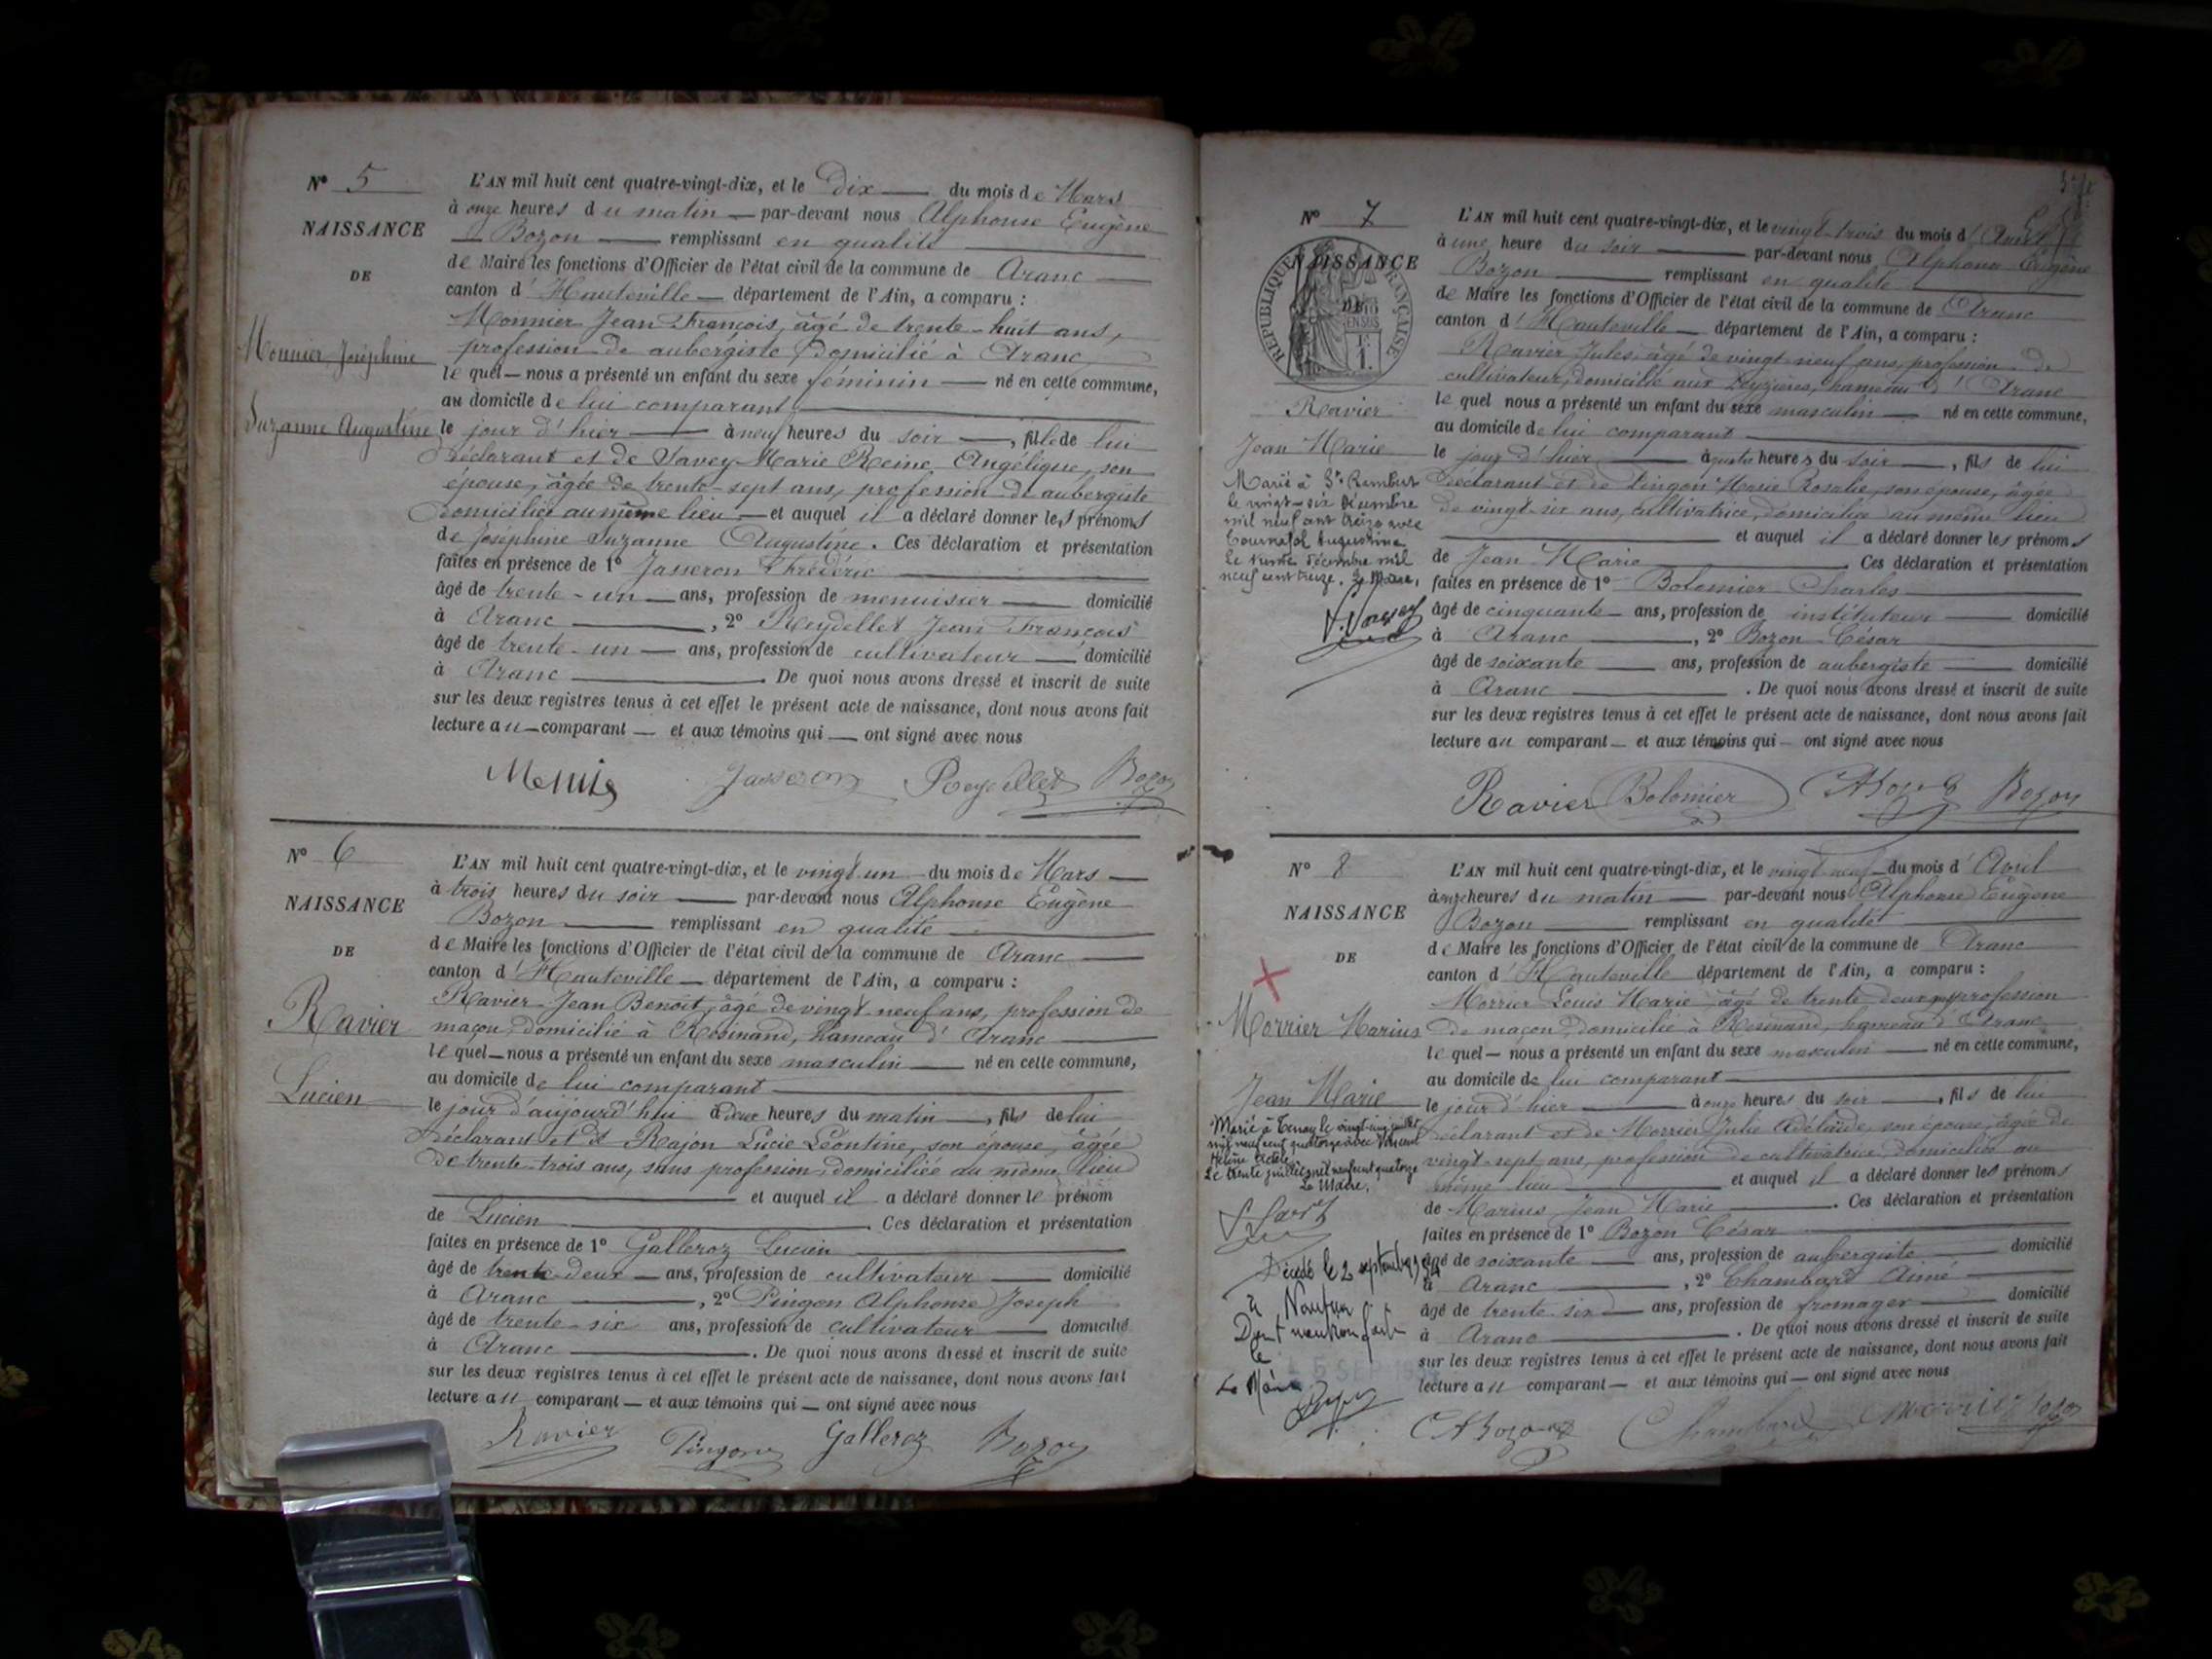 N° 5
NAISSANCE
DE
Monnier Joséphine
Suzanne Augustine
L'AN mil huit cent quatre-vingt-dix, et le Dix du mois de Mars
à onze heures du matin par-devant nous Alphonse Eugène
Bozon remplissant en qualité
de Maire les fonctions d'Officier de l'état civil de la commune de Aranc
canton d'Hauteville département de l'Ain, a comparu :
Monnier Jean François, âgé de trente-huit ans,
profession de aubergiste, domicilié à Aranc
lequel nous a présenté un enfant du sexe féminin né en cette commune,
au domicile de lui comparant
le jour d'hier à neuf heures du soir, fille de lui
déclarant et de Savey Marie Reine Angélique, son
épouse, âgée de trente-sept ans, profession de aubergiste
domiciliée au même lieu et auquel il a déclaré donner les prénoms
de Joséphine Suzanne Augustine. Ces déclaration et présentation
faites en présence de 1° Jasseron Phrédéric
âgé de trente-un ans, profession de menuisier domicilié
à Aranc, 2° Reydellet Jean François
âgé de trente-un ans, profession de cultivateur domicilié
à Aranc. De quoi nous avons dressé et inscrit de suite
sur les deux registres tenus à cet effet le présent acte de naissance, dont nous avons fait
lecture au comparant et aux témoins qui ont signé avec nous
Jasseron Reydellet Bozon
N° 6
NAISSANCE
DE
Ravier
Lucien
L'AN mil huit cent quatre-vingt-dix, et le vingt un du mois de Mars
à trois heures du soir par-devant nous Alphonse Eugène
Bozon remplissant en qualité
de Maire les fonctions d'Officier de l'état civil de la commune de Aranc
canton d'Hauteville département de l'Ain, a comparu :
Ravier Jean Benoit, âgé de vingt neuf ans, profession de
maçon, domicilié à Résinand, hameau d'Aranc
lequel nous a présenté un enfant du sexe masculin né en cette commune,
au domicile de lui comparant
le jour d'aujourd'hui à deux heures du matin, fils de lui
déclarant et de Rajon Lucie Léontine, son épouse, âgée
de trente-trois ans, sans profession, domiciliée au même lieu
et auquel il a déclaré donner le prénom
de Lucien. Ces déclaration et présentation
faites en présence de 1° Galleroz Lucien
âgé de trente-deux ans, profession de cultivateur domicilié
à Aranc, 2° Pingon Alphonse Joseph
âgé de trente-six ans, profession de cultivateur domicilié
à Aranc. De quoi nous avons dressé et inscrit de suite
sur les deux registres tenus à cet effet le présent acte de naissance, dont nous avons fait
lecture au comparant et aux témoins qui ont signé avec nous
Ravier Pingon Galleroz Bozon
N° 7
NAISSANCE
RÉPUBLIQUE FRANÇAISE
EN SUS
Ravier
Jean Marie
Marié à St Rambert
le vingt-six décembre
mil neuf cent treize avec
Tournafol Augustine
Le trente décembre mil
neuf cent treize. Le Maire,
L'AN mil huit cent quatre-vingt-dix, et le vingt-trois du mois d'Avril
à une heure du soir par-devant nous Alphonse Eugène
Bozon remplissant en qualité
de Maire les fonctions d'Officier de l'état civil de la commune de Aranc
canton d'Hauteville département de l'Ain, a comparu :
Ravier Jules, âgé de vingt neuf ans, profession de
cultivateur, domicilié aux Peyzières, hameau d'Aranc
lequel nous a présenté un enfant du sexe masculin né en cette commune,
au domicile de lui comparant
le jour d'hier à quatre heures du soir, fils de lui
déclarant et de Pingon Marie Rosalie, son épouse, âgée
de vingt-six ans, cultivatrice, domiciliée au même lieu
et auquel il a déclaré donner les prénoms
de Jean Marie. Ces déclaration et présentation
faites en présence de 1° Bolomier Charles
âgé de cinquante ans, profession de instituteur domicilié
à Aranc, 2° Bozon César
âgé de soixante ans, profession de aubergiste domicilié
à Aranc. De quoi nous avons dressé et inscrit de suite
sur les deux registres tenus à cet effet le présent acte de naissance, dont nous avons fait
lecture au comparant et aux témoins qui ont signé avec nous
Ravier Bolomier Bozon
N° 8
NAISSANCE
DE
Morrier Marius
Jean Marie
Marié à Tenay le vingt-cinq juillet
mil neuf cent quatorze avec Vincent
Hélène Adèle
Le trente juillet mil neuf cent quatorze
Le Maire,
Décédé le 2 septembre
à Nantua
Dont mention faite
le 5 SEP
Le Maire
L'AN mil huit cent quatre-vingt-dix, et le vingt neuf du mois d'Avril
à onze heures du matin par-devant nous Alphonse Eugène
Bozon remplissant en qualité
de Maire les fonctions d'Officier de l'état civil de la commune de Aranc
canton d'Hauteville département de l'Ain, a comparu :
Morrier Louis Marie, âgé de trente deux ans, profession
de maçon, domicilié à Résinand, hameau d'Aranc
lequel nous a présenté un enfant du sexe masculin né en cette commune,
au domicile de lui comparant
le jour d'hier à onze heures du soir, fils de lui
déclarant et de Morrier Julie Adélaïde, son épouse, âgée de
vingt-sept ans, profession de cultivatrice, domiciliée au
même lieu et auquel il a déclaré donner les prénoms
de Marius Jean Marie. Ces déclaration et présentation
faites en présence de 1° Bozon César
âgé de soixante ans, profession de aubergiste domicilié
à Aranc, 2° Chambard Aimé
âgé de trente-six ans, profession de fromager domicilié
à Aranc. De quoi nous avons dressé et inscrit de suite
sur les deux registres tenus à cet effet le présent acte de naissance, dont nous avons fait
lecture au comparant et aux témoins qui ont signé avec nous
Bozon Chambard Morrier Bozon